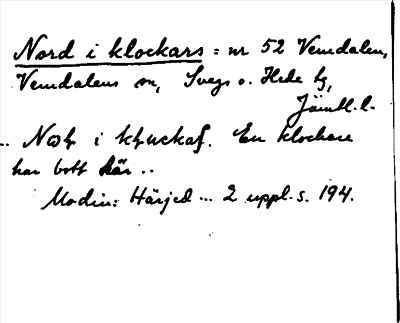 Nord i klockars = nr 52 Vemdalen,
Vemdalens sn, Svegs o. Hede tg,
Jämtl. l.
.. i En klockare
har bott här ..
Modin: Härjed ... 2 uppl. s. 194.